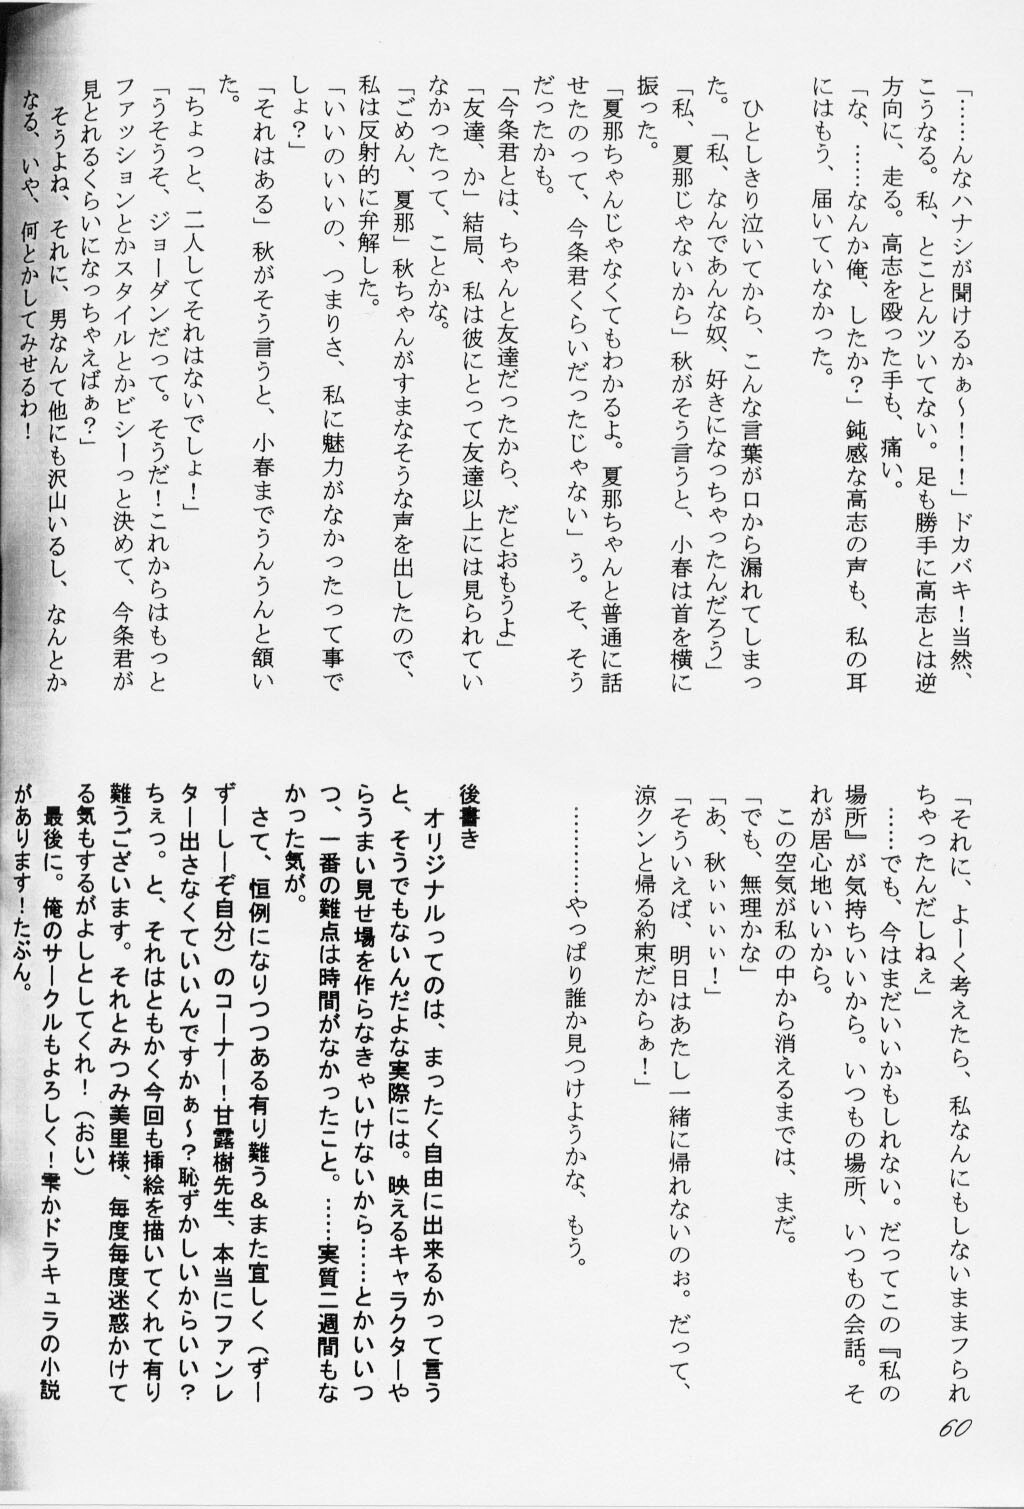 「……んなハナシが聞けるかぁ～！！！」ドカバキ！当然、
こうなる。私、とことんツいてない。足も勝手に高志とは逆
方向に、走る。高志を殴った手も、痛い。
「な、……なんか俺、したか？」鈍感な高志の声も、私の耳
にはもう、届いていなかった。
ひとしきり泣いてから、こんな言葉が口から漏れてしまっ
た。「私、なんであんな奴、好きになっちゃったんだろう」
「私、夏那じゃないから」秋がそう言うと、小春は首を横に
振った。
「夏那ちゃんじゃなくてもわかるよ。夏那ちゃんと普通に話
せたのって、今条君くらいだったじゃない」う。そ、そう
だったかも。
「今条君とは、ちゃんと友達だったから、だとおもうよ」
「友達、か」結局、私は彼にとって友達以上には見られてい
なかったって、ことかな。
「ごめん、夏那」秋ちゃんがすまなそうな声を出したので、
私は反射的に弁解した。
「いいのいいの、つまりさ、私に魅力がなかったって事で
しょ？」
「それはある」秋がそう言うと、小春までうんうんと頷い
た。
「ちょっと、二人してそれはないでしょ！」
「うそうそ、ジョーダンだって。そうだ！これからはもっと
ファッションとかスタイルとかビシーっと決めて、今条君が
見とれるくらいになっちゃえばぁ？」
そうよね、それに、男なんて他にも沢山いるし、なんとか
なる、いや、何とかしてみせるわ！
「それに、よーく考えたら、私なんにもしないままフられ
ちゃったんだしねぇ」
……でも、今はまだいいかもしれない。だってこの『私の
場所』が気持ちいいから。いつもの場所、いつもの会話。そ
れが居心地いいから。
この空気が私の中から消えるまでは、まだ。
「でも、無理かな」
「あ、秋ぃぃぃぃ！」
「そういえば、明日はあたし一緒に帰れないのぉ。だって、
涼クンと帰る約束だからぁ！」
…………やっぱり誰か見つけようかな、もう。
後書き
オリジナルってのは、まったく自由に出来るかって言う
と、そうでもないんだよな実際には。映えるキャラクターや
らうまい見せ場を作らなきゃいけないから……とかいいつ
つ、一番の難点は時間がなかったこと。……実質二週間もな
かった気が。
さて、恒例になりつつある有り難う＆また宜しく（ずー
ずーしーぞ自分）のコーナー！甘露樹先生、本当にファンレ
ター出さなくていいんですかぁ～？恥ずかしいからいい？
ちぇっ。と、それはともかく今回も挿絵を描いてくれて有り
難うございます。それとみつみ美里様、毎度毎度迷惑かけて
る気もするがよしとしてくれ！（おい）
最後に。俺のサークルもよろしく！雫かドラキュラの小説
があります！たぶん。
60